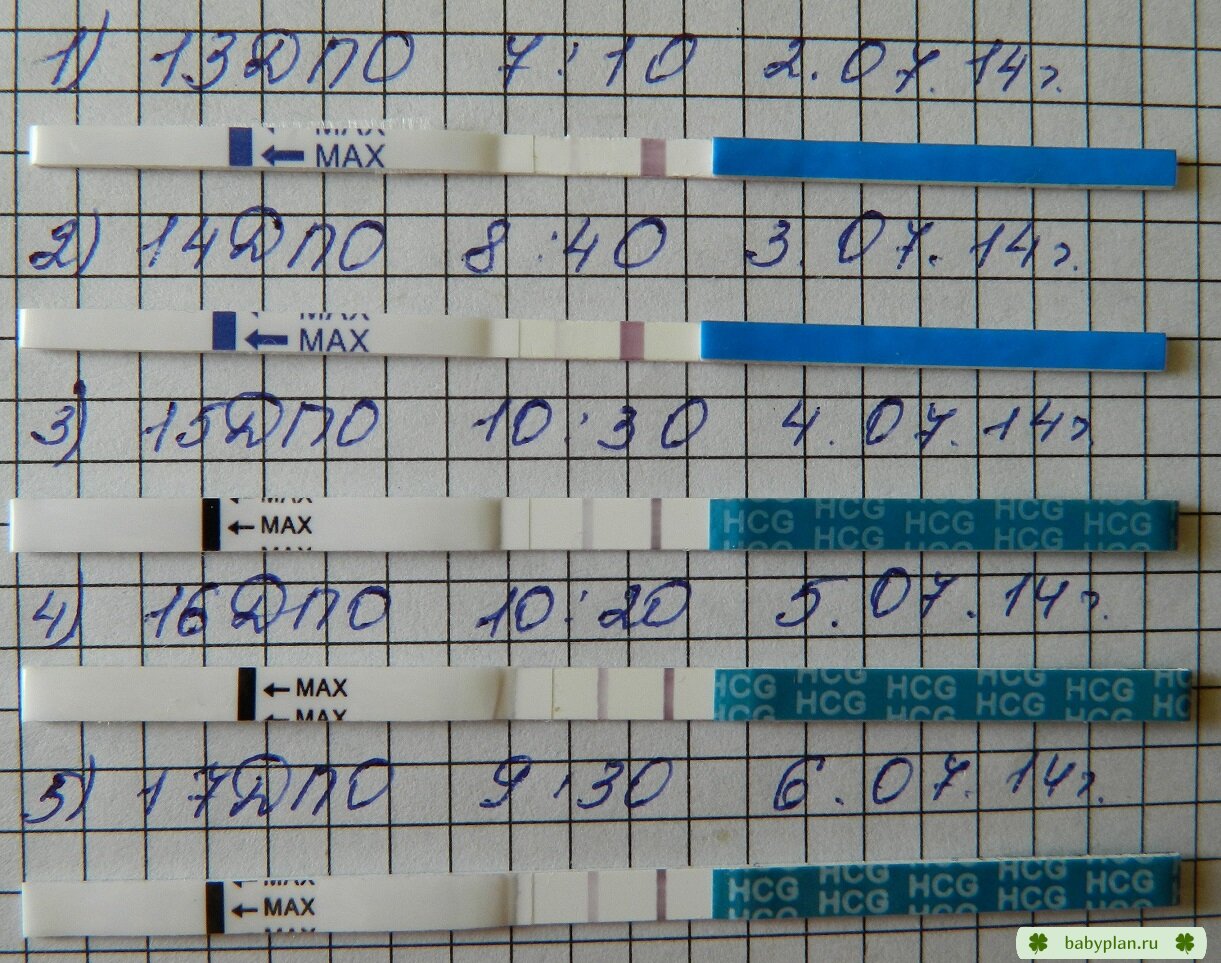 1) 13ДПО 7:10 2.07.14г.
MAX
MAX
2) 14ДПО 8:40 3.07.14г.
MAX
MAX
3) 15ДПО 10:30 4.07.14г
MAX
MAX
MAX
HCG HCG HCG HCG HCG
HCG HCG HCG HCG HCG
4) 16ДПО 10:20 5.07.14г.
MAX
MAX
HCG HCG HCG HCG HCG HCG
HCG HCG HCG HCG HCG HC
5) 17ДПО 9:30 6.07.14г.
MAX
MAX
MAX
HCG HCG HCG HCG HCG
HCG HCG HCG HCG HCG
babyplan.ru